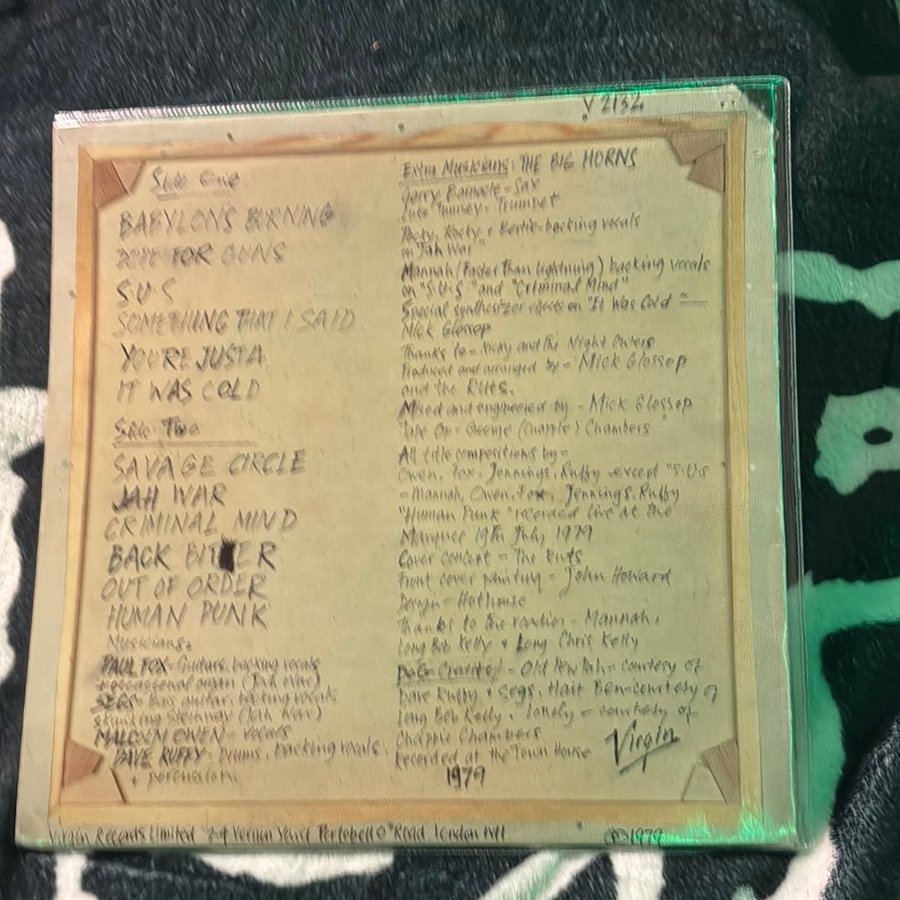 V 2132
Side One
BABYLON'S BURNING
DOPE FOR GUNS
S U S
SOMETHING THAT I SAID
YOU'RE JUST A
IT WAS COLD
Side Two
SAVAGE CIRCLE
JAH WAR
CRIMINAL MIND
BACK BITER
OUT OF ORDER
HUMAN PUNK
Musicians.
PAUL FOX - Guitars, backing vocals
+ occasional organ (Jah War)
SEGS - Bass guitar, backing vocals
skanking Steinway (Jah War)
MALCOLM OWEN - Vocals
DAVE RUFFY - Drums, backing vocals.
+ percussion.
Extra Musicians: THE BIG HORNS
Gary Barnacle - Sax
Luke Tunney - Trumpet
Rocky, Rocky + Bertie - backing vocals
on "Jah War"
Mannah (Faster Than Lightning) backing vocals
on "S.U.S" and "Criminal Mind"
Special synthesizer effects on "It Was Cold" =
Mick Glossop
Thanks to = Nicky and the Night Owlers
Produced and arranged by = Mick Glossop
and the Ruts.
Mixed and engineered by - Mick Glossop
Tape Op = George (Chappie) Chambers
All title compositions by =
Owen, Fox, Jennings, Ruffy except "S.U.S"
= Mannah, Owen, Fox, Jennings, Ruffy
"Human Punk" recorded live at the
Marquee 19th July 1979
Cover concept = The Ruts
Front cover painting = John Howard
Design = Hothouse
Thanks to the roadies = Mannah,
Long Bob Kelly + Long Chris Kelly
= Old Jew Jah = courtesy of
Dave Ruffy + Segs, Hait Ben - courtesy of
Long Bob Kelly, Lonely = courtesy of
Chappie Chambers
Recorded at the Town House
1979
Virgin
Virgin Records Limited 2-4 Vernon Yard Portobello Road London W11
℗©1979